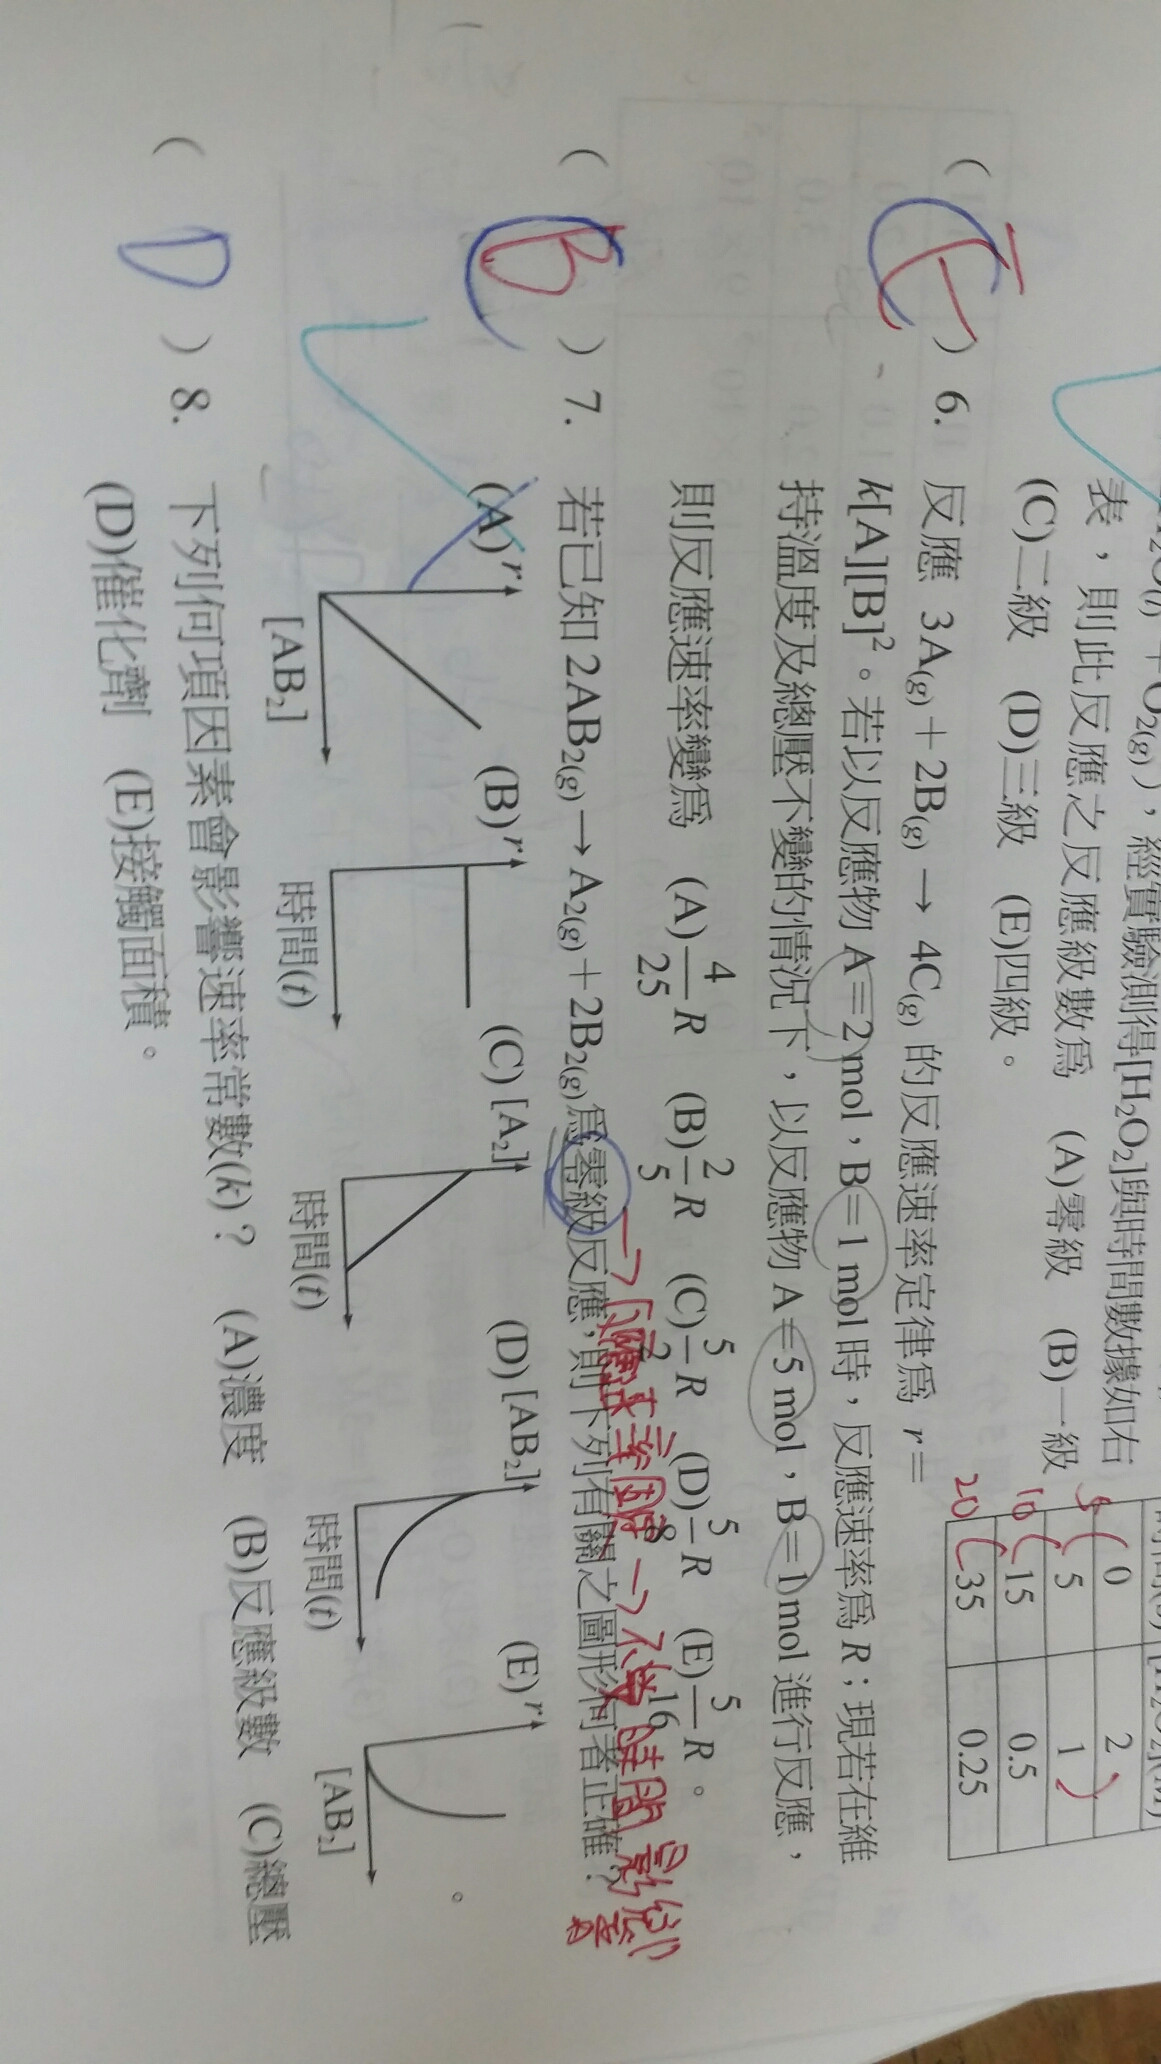 表，則此反應之反應級數為　(A)零級　(B)一級
(C)二級　(D)三級　(E)四級。
0　2
5　1
15　0.5
35　0.25
5
10
20
( E ) 6. 反應 3A(g)＋2B(g) → 4C(g) 的反應速率定律為 r＝
k[A][B]²。若以反應物 A＝2 mol，B＝1 mol 時，反應速率為 R；現若在維
持溫度及總壓不變的情況下，以反應物 A＝5 mol，B＝1 mol 進行反應，
則反應速率變為　(A) 4/25 R　(B) 2/5 R　(C) 5/2 R　(D) 5/8 R　(E) 5/16 R。
→反應速率固定→不受時間影響
( B ) 7. 若已知 2AB₂(g) → A₂(g)＋2B₂(g)為零級反應，則下列有關之圖形何者正確？
(A) r　(B) r　(C) [A₂]　(D) [AB₂]　(E) r
[AB₂]　時間(t)　時間(t)　時間(t)　[AB₂]　。
( D ) 8. 下列何項因素會影響速率常數(k)？　(A)濃度　(B)反應級數　(C)總壓
(D)催化劑　(E)接觸面積。